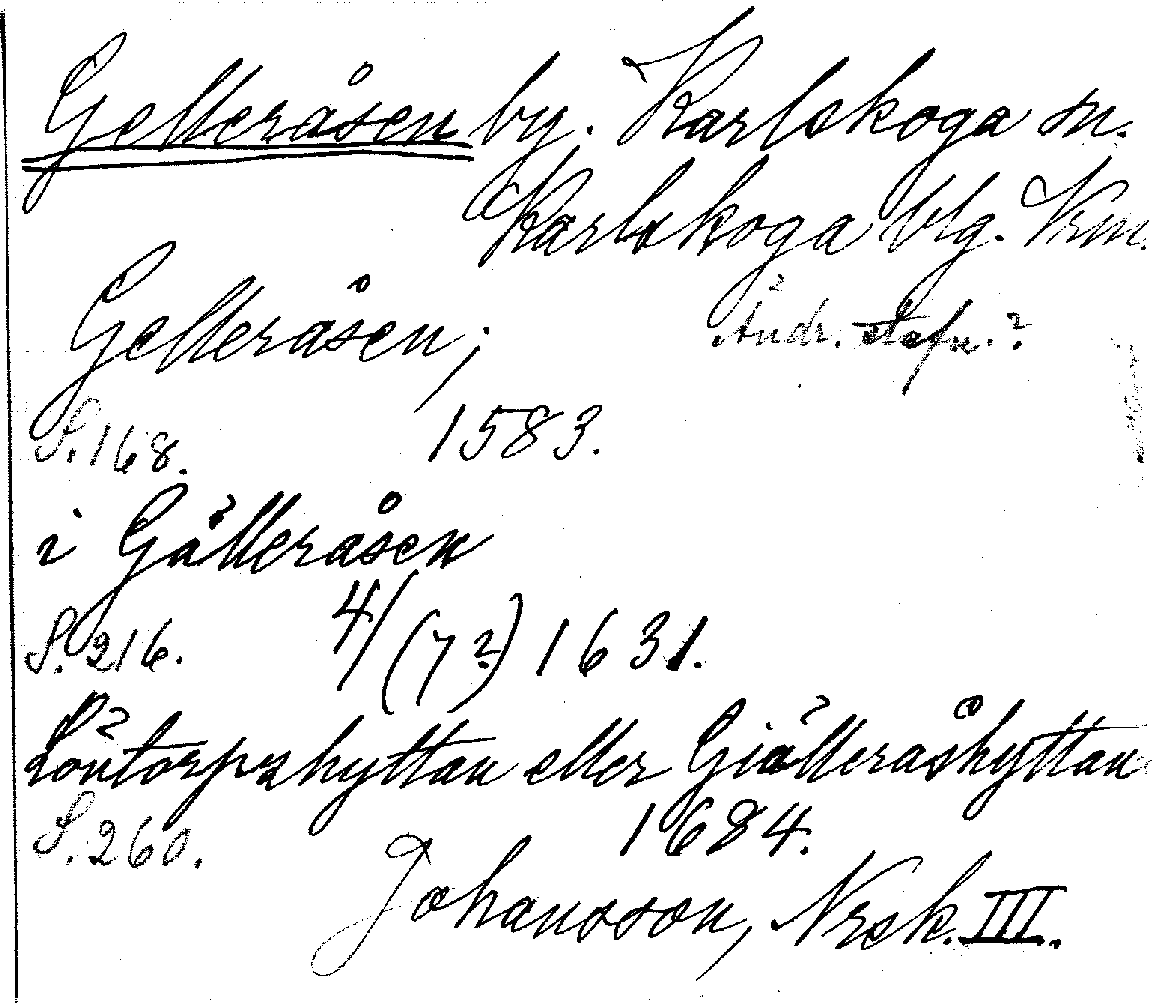 Gelleråsen by. Karlskoga sn.
Karlskoga blg. Vrm.
Gelleråsen;
Ändr. stafn.?
S. 168. 1583.
i Gälleråsen
S. 216. 4/(7?) 1631.
Löntorpshyttan eller Giälleråshyttan
S. 260. 1684.
Johansson, Nrsk. III.